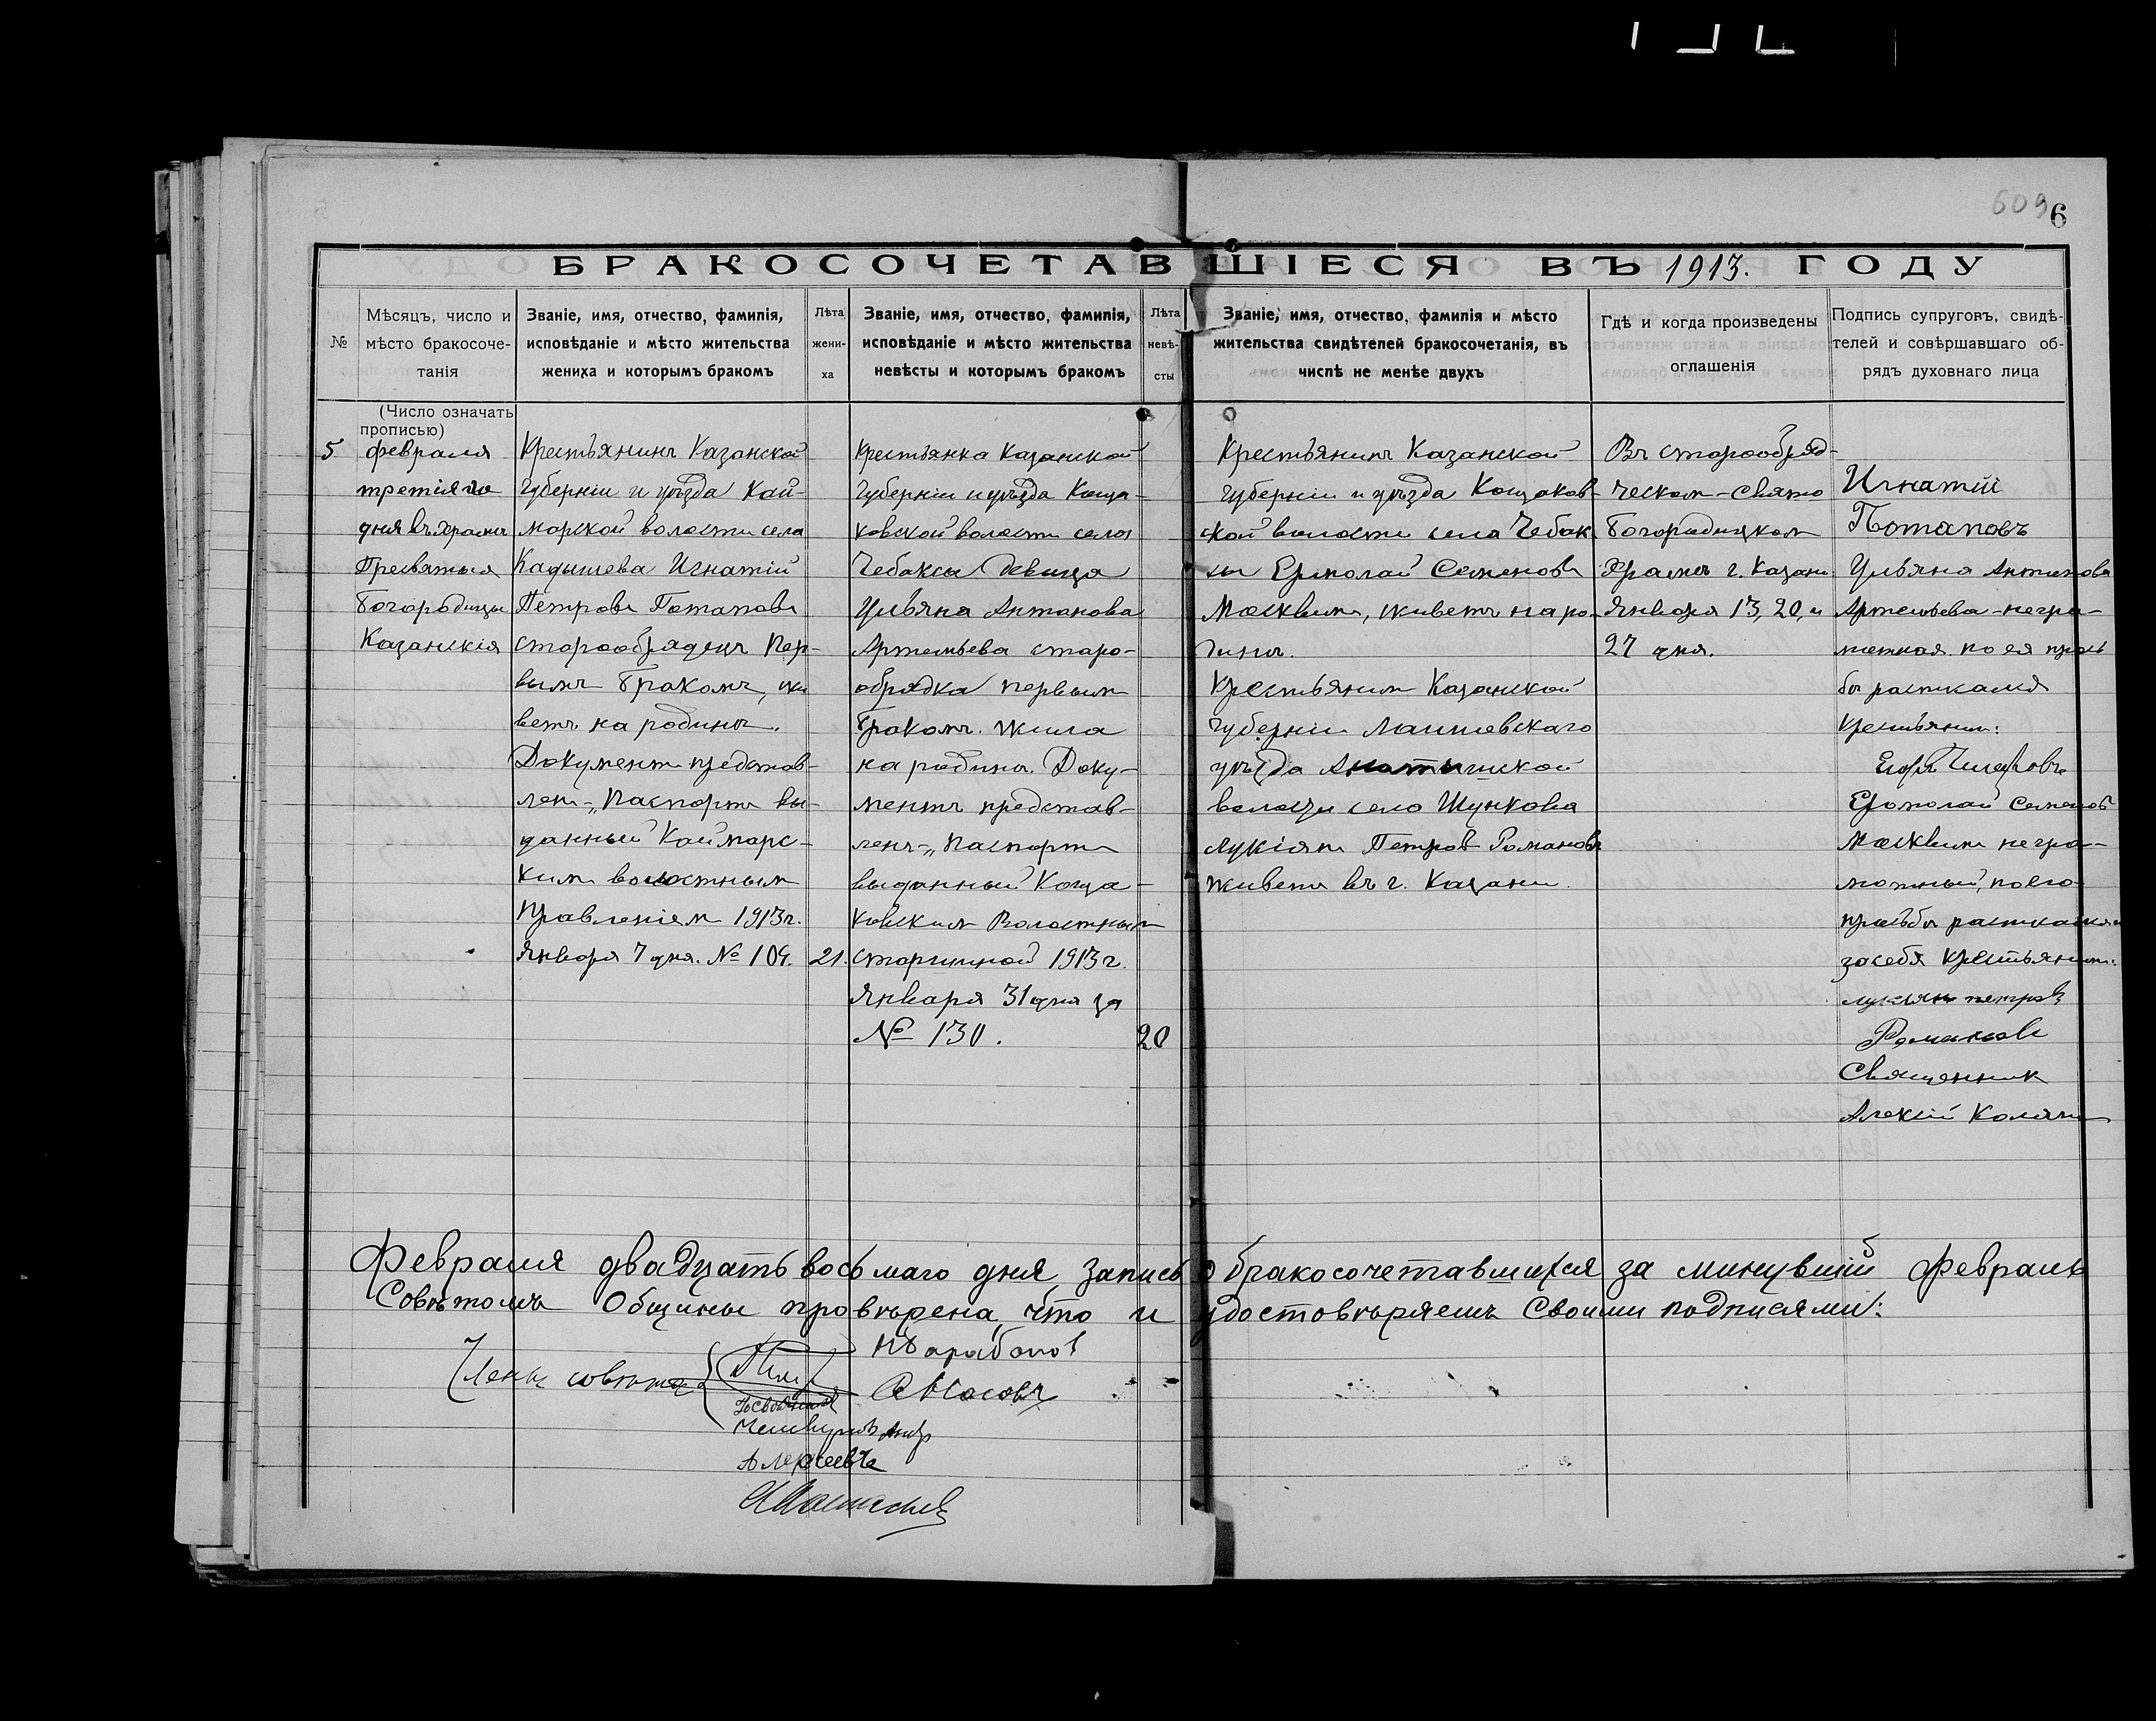 609 6
БРАКОСОЧЕТАВШІЕСЯ ВЪ 1913. ГОДУ
№
Мѣсяцъ, число и
мѣсто бракосоче-
танія
Званіе, имя, отчество, фамилія,
исповѣданіе и мѣсто жительства
жениха и которымъ бракомъ
Лѣта
жени-
ха
Званіе, имя, отчество, фамилія,
исповѣданіе и мѣсто жительства
невѣсты и которымъ бракомъ
Лѣта
невѣ-
сты
Званіе, имя, отчество, фамилія и мѣсто
жительства свидѣтелей бракосочетанія, въ
числѣ не менѣе двухъ
Гдѣ и когда произведены
оглашенія
Подпись супруговъ, свидѣ-
телей и совѣршавшаго об-
рядъ духовнаго лица
(Число означать
прописью)
5
февраля
третіяго
дня въ храмѣ
Пресвятыя
Богородицы
Казанскія
Крестьянинъ Казанской
Губерніи и уѣзда Кай-
марской волости села
Кадышева Игнатій
Петровъ Потаповъ
старообрядецъ Пер-
вымъ бракомъ, жи
ветъ на родинѣ.
Документъ представ-
ленъ-„Паспортъ вы-
данный Каймарс-
кимъ волостнымъ
Правленіем 1913 г.
Января 7 дня. № 109.
21.
Крестьянка Казанской
Губерніи и уѣзда Коща-
ковской волости села
Чебаксы Девица
Ульяна Антонова
Артемьева старо-
обрядка первым
бракомъ. жила
на родинѣ. Доку-
ментъ представ-
ленъ-„Паспортъ
выданный Коща-
ковским Волостным
старшиной 1913 г.
Января 31 дня за
№ 130.
20
Крестьянинъ Казанской
губерніи и уѣзда Кощаков-
ской волости села Чебак
сы Ермолай Семеновъ
Москвинъ, живетъ на ро-
динѣ.
Крестьянинъ Казанской
губерніи Лаишевскаго
уѣзда Анатышской
волости село Шункова
Лукіянъ Петров Романовъ
живетъ въ г. Казани.
Въ старообряд-
ческом-Свято
Богородицком
Храмѣ г. Казани
Января 13, 20, и
27 дня.
Игнатій
Потаповъ
Ульяна Антонова
Артемьева-негра-
мотная. по ея прось
бѣ расписался
крестьянин:
Ермолай Семенов
Москвин негра-
мотный, по его
просьбѣ расписался
за себя крестьянин:
лукіян петровъ
Романовъ
Священник
Алексій Калягин
Февраля двадцать восьмаго дня, запись о бракосочетавшихся за минувшій Февраль
Совѣтомъ Общины провѣрена, что и удостовѣряемъ Своими подписями:
Члены совѣта
А Носовъ
Алексеевъ